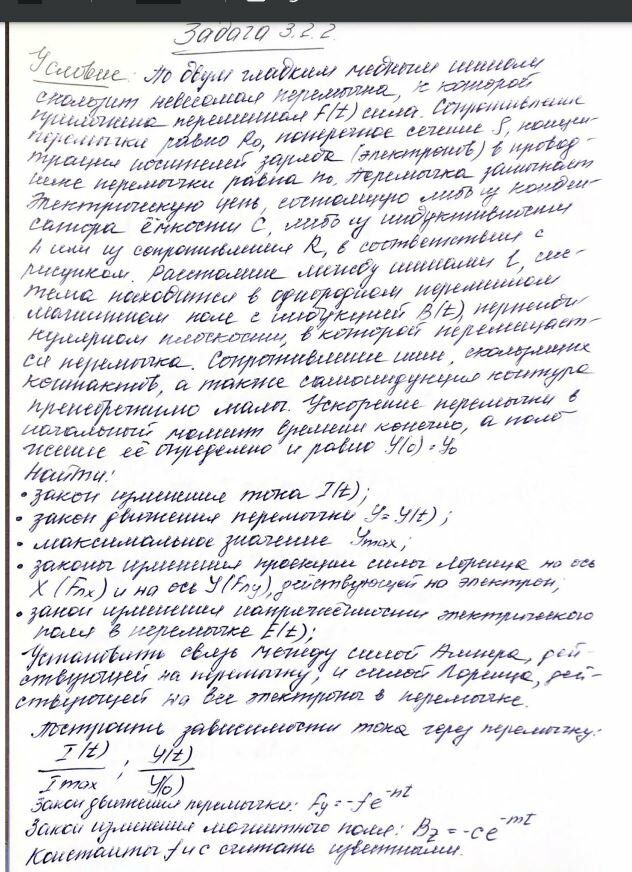 Задача 3.2.2.
Условие: По двум гладким медным шинам
скользит невесомая перемычка, к которой
приложена переменная F(t) сила. Сопротивление
перемычки равно R₀, поперечное сечение S, концен-
трация носителей заряда (электронов) в провод-
нике перемычки равна n₀. Перемычка замыкает
электрическую цепь, состоящую либо из конден-
сатора ёмкости C, либо из индуктивности
L или из сопротивления R, в соответствии с
рисунком. Расстояние между шинами l, сис-
тема находится в однородном переменном
магнитном поле с индукцией B(t), перпенди-
кулярном плоскости, в которой перемещает-
ся перемычка. Сопротивление шин, скользящих
контактов, а также самоиндукция контура
пренебрежимо малы. Ускорение перемычки в
начальный момент времени конечно, а поло
жение её определено и равно y(0) = y₀
Найти:
• закон изменения тока I(t);
• закон движения перемычки y = y(t);
• максимальное значение ymax;
• законы изменения проекции силы Лоренца на ось
X (Fлх) и на ось Y (Fлу), действующей на электрон;
• закон изменения напряжённости электрического
поля в перемычке E(t);
Установить связь между силой Ампера, дей-
ствующей на перемычку, и силой Лоренца, дей-
ствующей на все электроны в перемычке.
Построить зависимости тока через перемычку:
I(t)/Imax ; y(t)/y(0)
Закон движения перемычки: Fy = -fe^-nt
Закон изменения магнитного поля: Bz = -ce^-mt
Константы f и c считать известными.